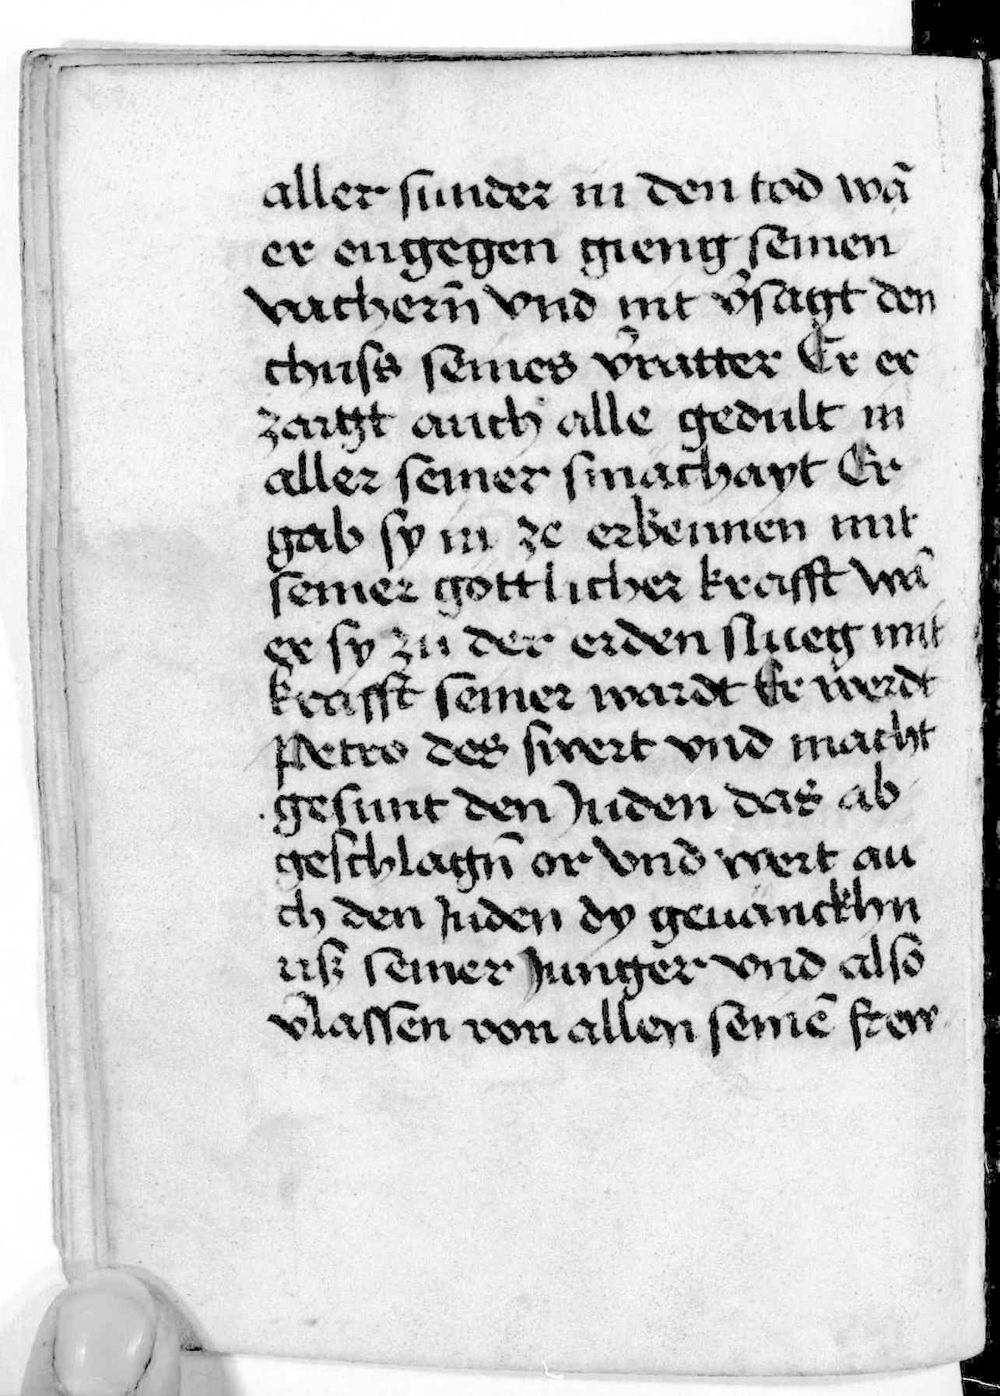 aller sunder in den tod wā
er engegen gieng seinen
vachern̄ vnd nit v̄sagt den
chuss seines v̄ratter Er er
zaigt auch alle gedult in
aller seiner smachayt Er
gab sy in ze erkennen mit
seiner gottlicher krafft wā
er sy zů der erden slueg mit
krafft seiner wardt Er werdt
Petro des swert vnd macht
gesunt den Juden das ab
geschlagn̄ or vnd wert au
ch den Juden dy geuanckhn
uss seiner Junger vnd also
v̄lassen von allen seinē frew